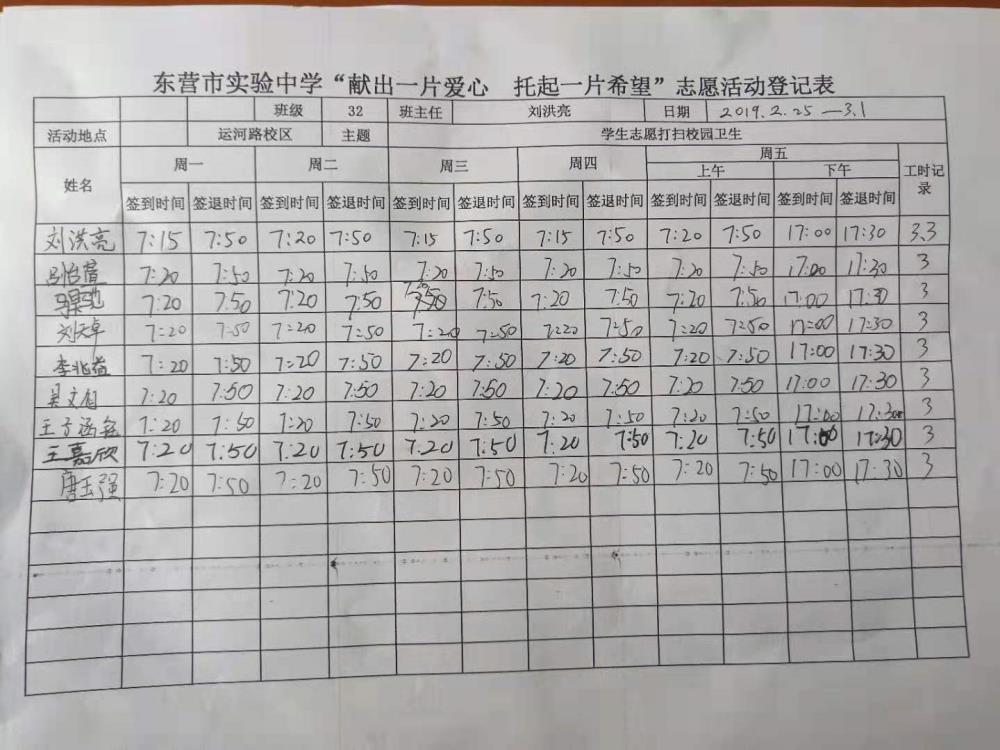 东营市实验中学“献出一片爱心 托起一片希望”志愿活动登记表
班级 32 班主任 刘洪亮 日期 2019.2.25—3.1
活动地点 运河路校区 主题 学生志愿打扫校园卫生
姓名 周一 周二 周三 周四 周五 工时记录
上午 下午
签到时间 签退时间 签到时间 签退时间 签到时间 签退时间 签到时间 签退时间 签到时间 签退时间 签到时间 签退时间
刘洪亮 7:15 7:50 7:20 7:50 7:15 7:50 7:15 7:50 7:20 7:50 17:00 17:30 3.3
7:20 7:50 7:20 7:50 7:20 7:50 7:20 7:50 7:20 7:50 17:00 17:30 3
7:20 7:50 7:20 7:50 7:20 7:50 7:20 7:50 7:20 7:50 17:00 17:30 3
刘天卓 7:20 7:50 7:20 7:50 7:20 7:50 7:20 7:50 7:20 7:50 17:00 17:30 3
李兆益 7:20 7:50 7:20 7:50 7:20 7:50 7:20 7:50 7:20 7:50 17:00 17:30 3
7:20 7:50 7:20 7:50 7:20 7:50 7:20 7:50 7:20 7:50 17:00 17:30 3
王子涵 7:20 7:50 7:20 7:50 7:20 7:50 7:20 7:50 7:20 7:50 17:00 17:30 3
王嘉欣 7:20 7:50 7:20 7:50 7:20 7:50 7:20 7:50 7:20 7:50 17:00 17:30 3
唐玉强 7:20 7:50 7:20 7:50 7:20 7:50 7:20 7:50 7:20 7:50 17:00 17:30 3